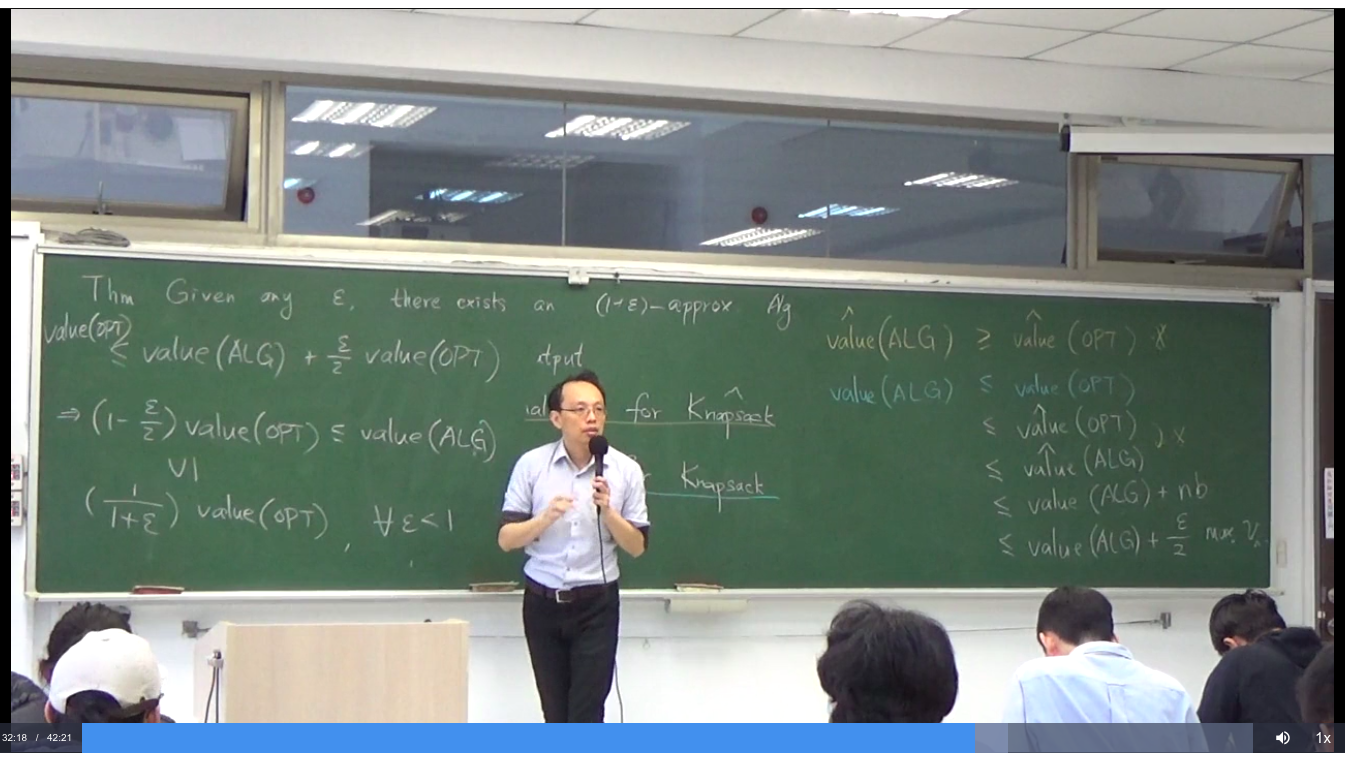 Thm Given any ε, there exists an (1+ε)-approx Alg
value(OPT)
≤ value(ALG) + ε/2 value(OPT)
⇒ (1 - ε/2) value(OPT) ≤ value(ALG)
VI
(1/(1+ε)) value(OPT), ∀ ε < 1
for Knapsack^
Knapsack
value^(ALG) ≥ value^(OPT)
value(ALG) ≤ value(OPT)
≤ value^(OPT)
≤ value^(ALG)
≤ value(ALG) + nb
≤ value(ALG) + ε/2 max
32:18 / 42:21
1x